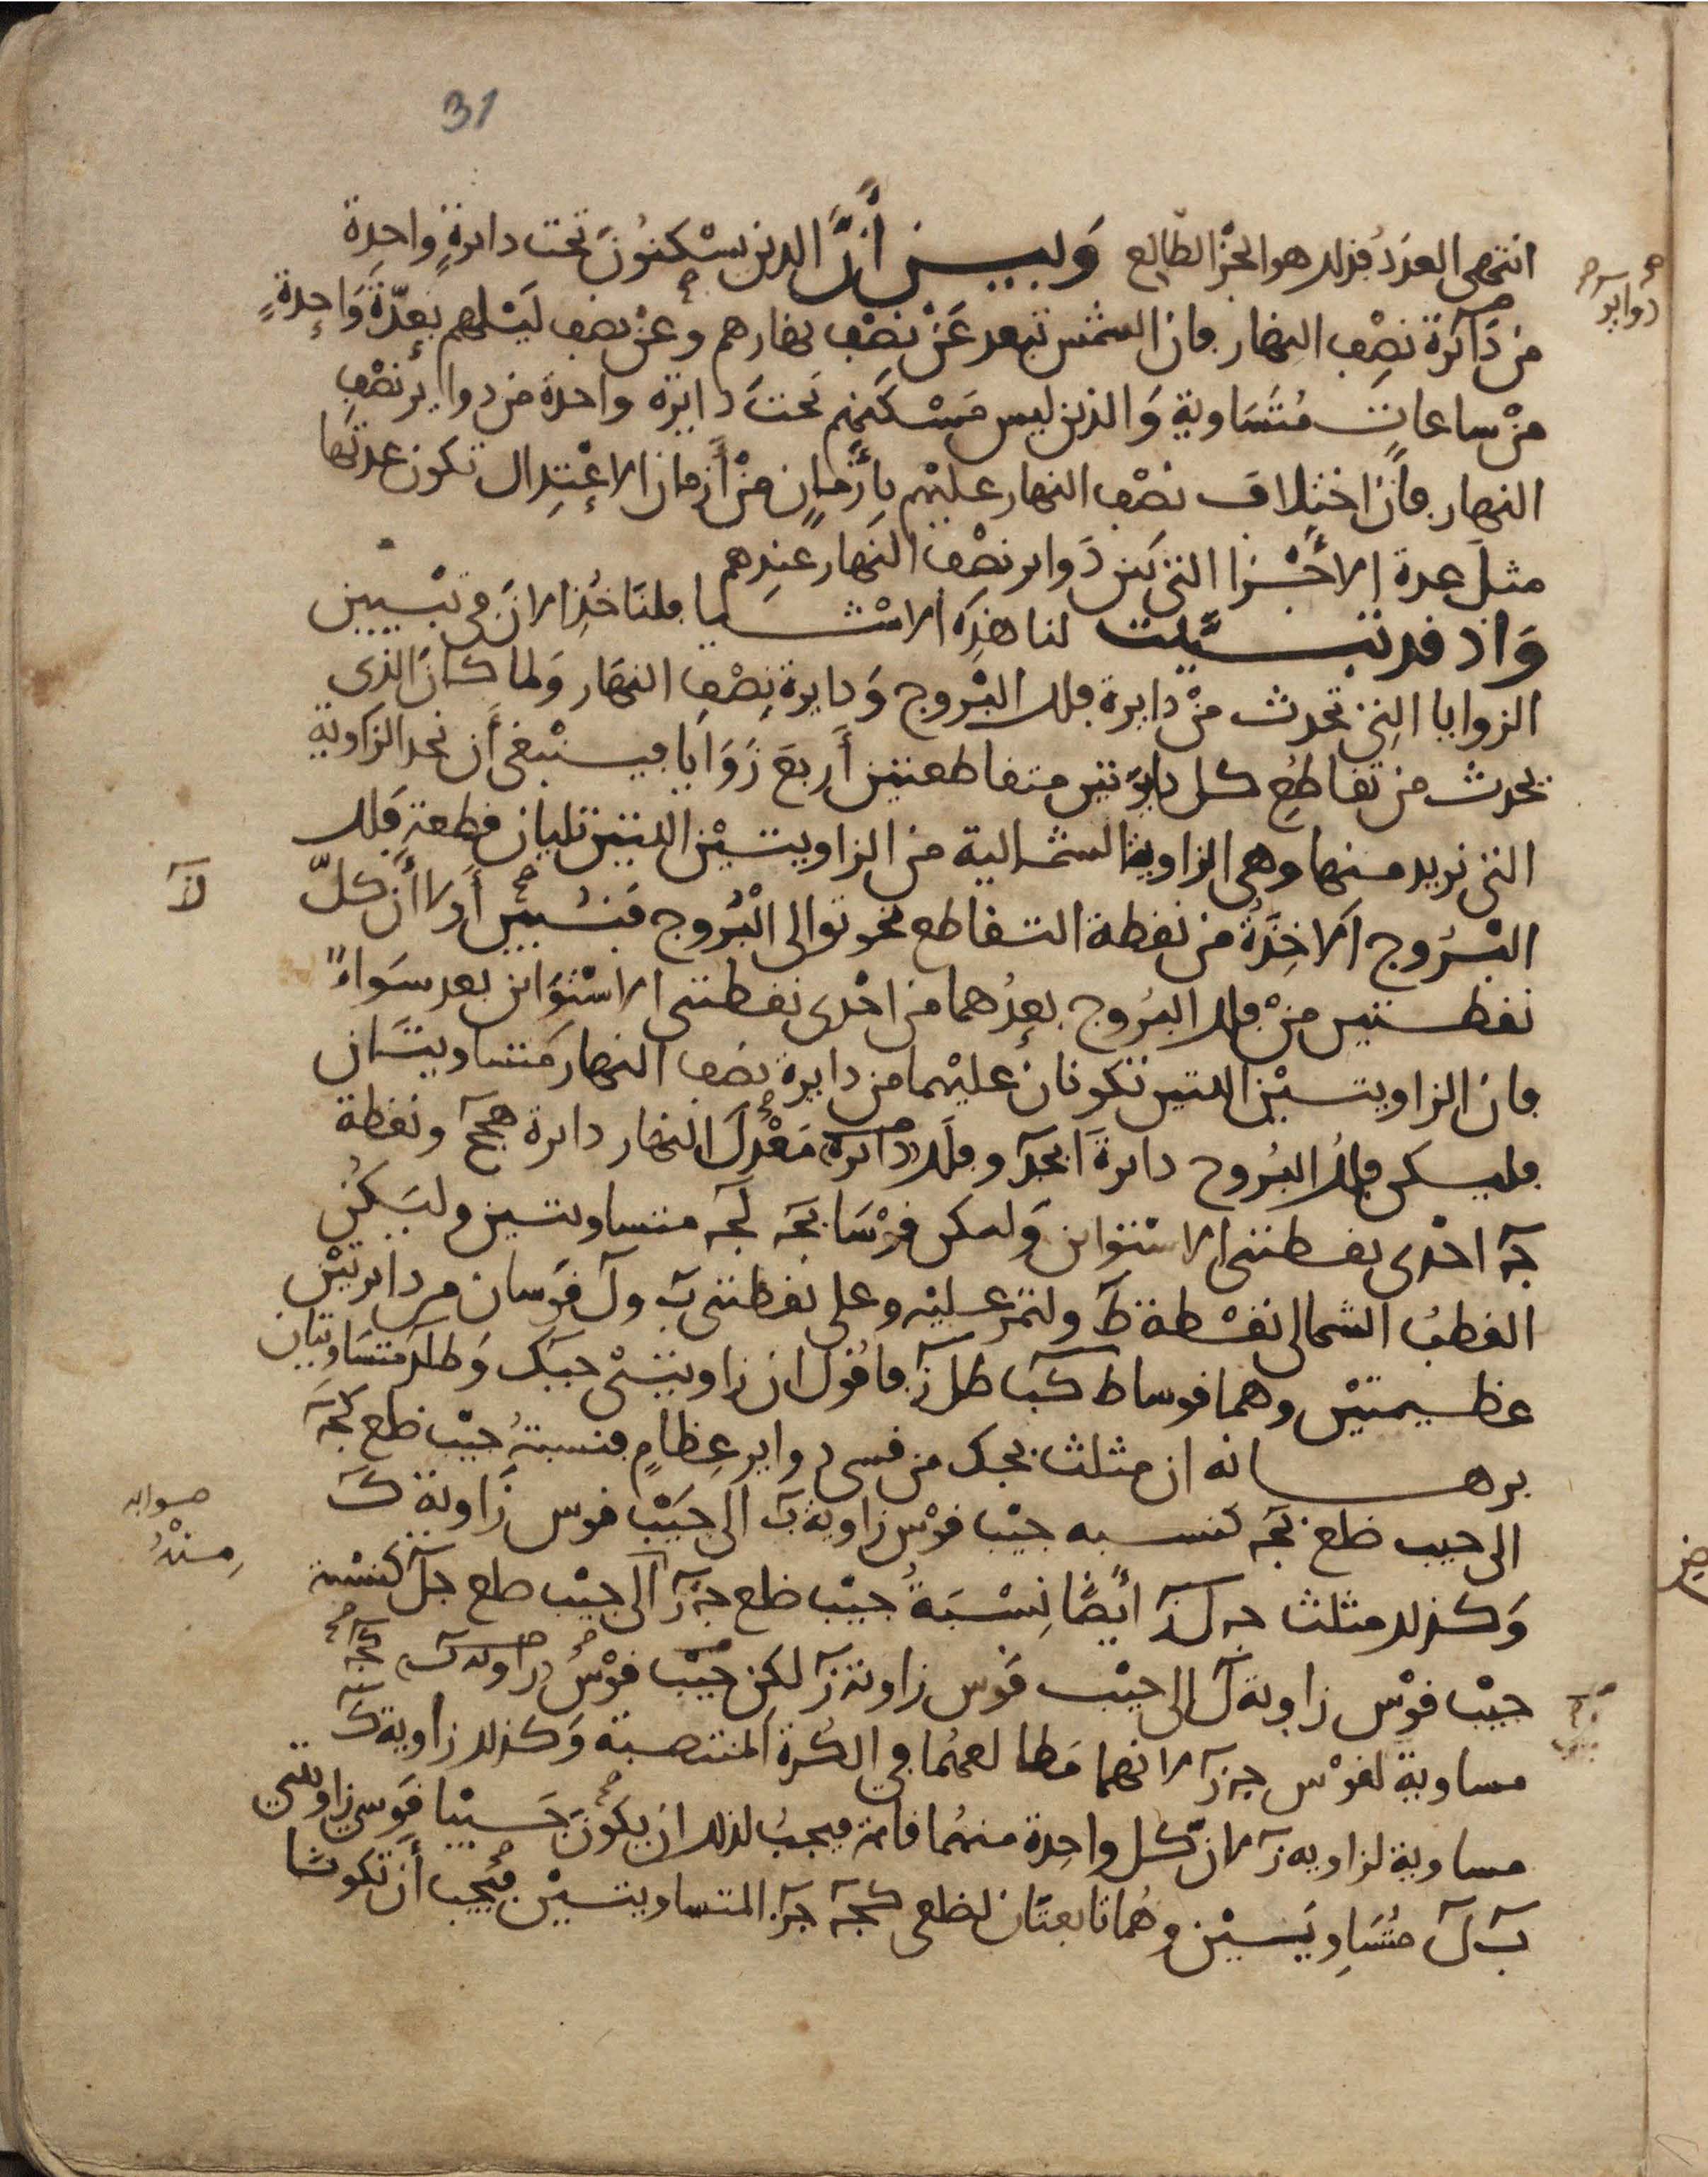 31
انتهى العدد فذلك هو الجزء الطالع وبين أن الذين يسكنون تحت دائرة واحدة
دوائر
من دائرة نصف النهار فان الشمس تبعد عن نصف نهارهم وعن نصف ليلهم بعدة واحدة
من ساعات متساوية والذين ليس مسكنهم تحت دائرة واحدة من دوائر نصف
النهار فان اختلاف نصف النهار عليهم بأزمان من أزمان الاعتدال تكون عدتها
مثل عدة الأجزا التي بين دوائر نصف النهار عندهم
واذ قد تبينت لنا هذه الاشيا فلناخذ الان في تبيين
الزوايا التي تحدث من دايرة فلك البروج ودايرة نصف النهار ولما كان الذي
يحدث من تقاطع كل دايرتين متقاطعتين أربع زوايا فينبغي أن نحد الزاوية
التي نريد منها وهي الزاوية الشمالية من الزاويتين اللتين تليان قطعة فلك
البروج الاخذة من نقطة التقاطع نحو توالي البروج فنبين أولا أن كل
لآ
نقطتين من فلك البروج بعدهما من احدى نقطتي الاستوائين بعد سواء
فان الزاويتين اللتين تكونان عليهما من دايرة نصف النهار متساويتان
فليكن فلك البروج دايرة ابجد وفلك دائرة معدل النهار دايرة هجح ونقطة
جـ احدى نقطتي الاستوائين وليكن قوسا بجـ لجـ متساويتين وليكن
القطب الشمالي نقطة ط ولتمر عليه وعلى نقطتي ب ول قوسان من دايرتين
عظيمتين وهما قوسا طكب طلز فاقول ان زاويتي جبك وطلد متساويتان
برهانه ان مثلث بجك من قسي دواير عظام فنسبة جيب ضلع كجـ
الى جيب ضلع بجـ كنسبة جيب قوس زاوية ب الى جيب قوس زاوية ك
صوابه
منه
وكذلك مثلث جـلز أيضا نسبة جيب ضلع جـز الى جيب ضلع جل كنسبة
جيب قوس زاوية ل الى جيب قوس زاوية ز لكن جيب قوس زاوية ك كجـ
مساوية لقوس جـز لانهما مطالعهما في الكرة المنتصبة وكذلك زاوية ك
مساوية لزاوية ز لان كل واحدة منهما قائمة فيجب لذلك ان يكون جيبا قوسي زاويتي
ب ل متساويين وهما تابعتان لضلعي كجـ جز المتساويتين فيجب أن تكونا